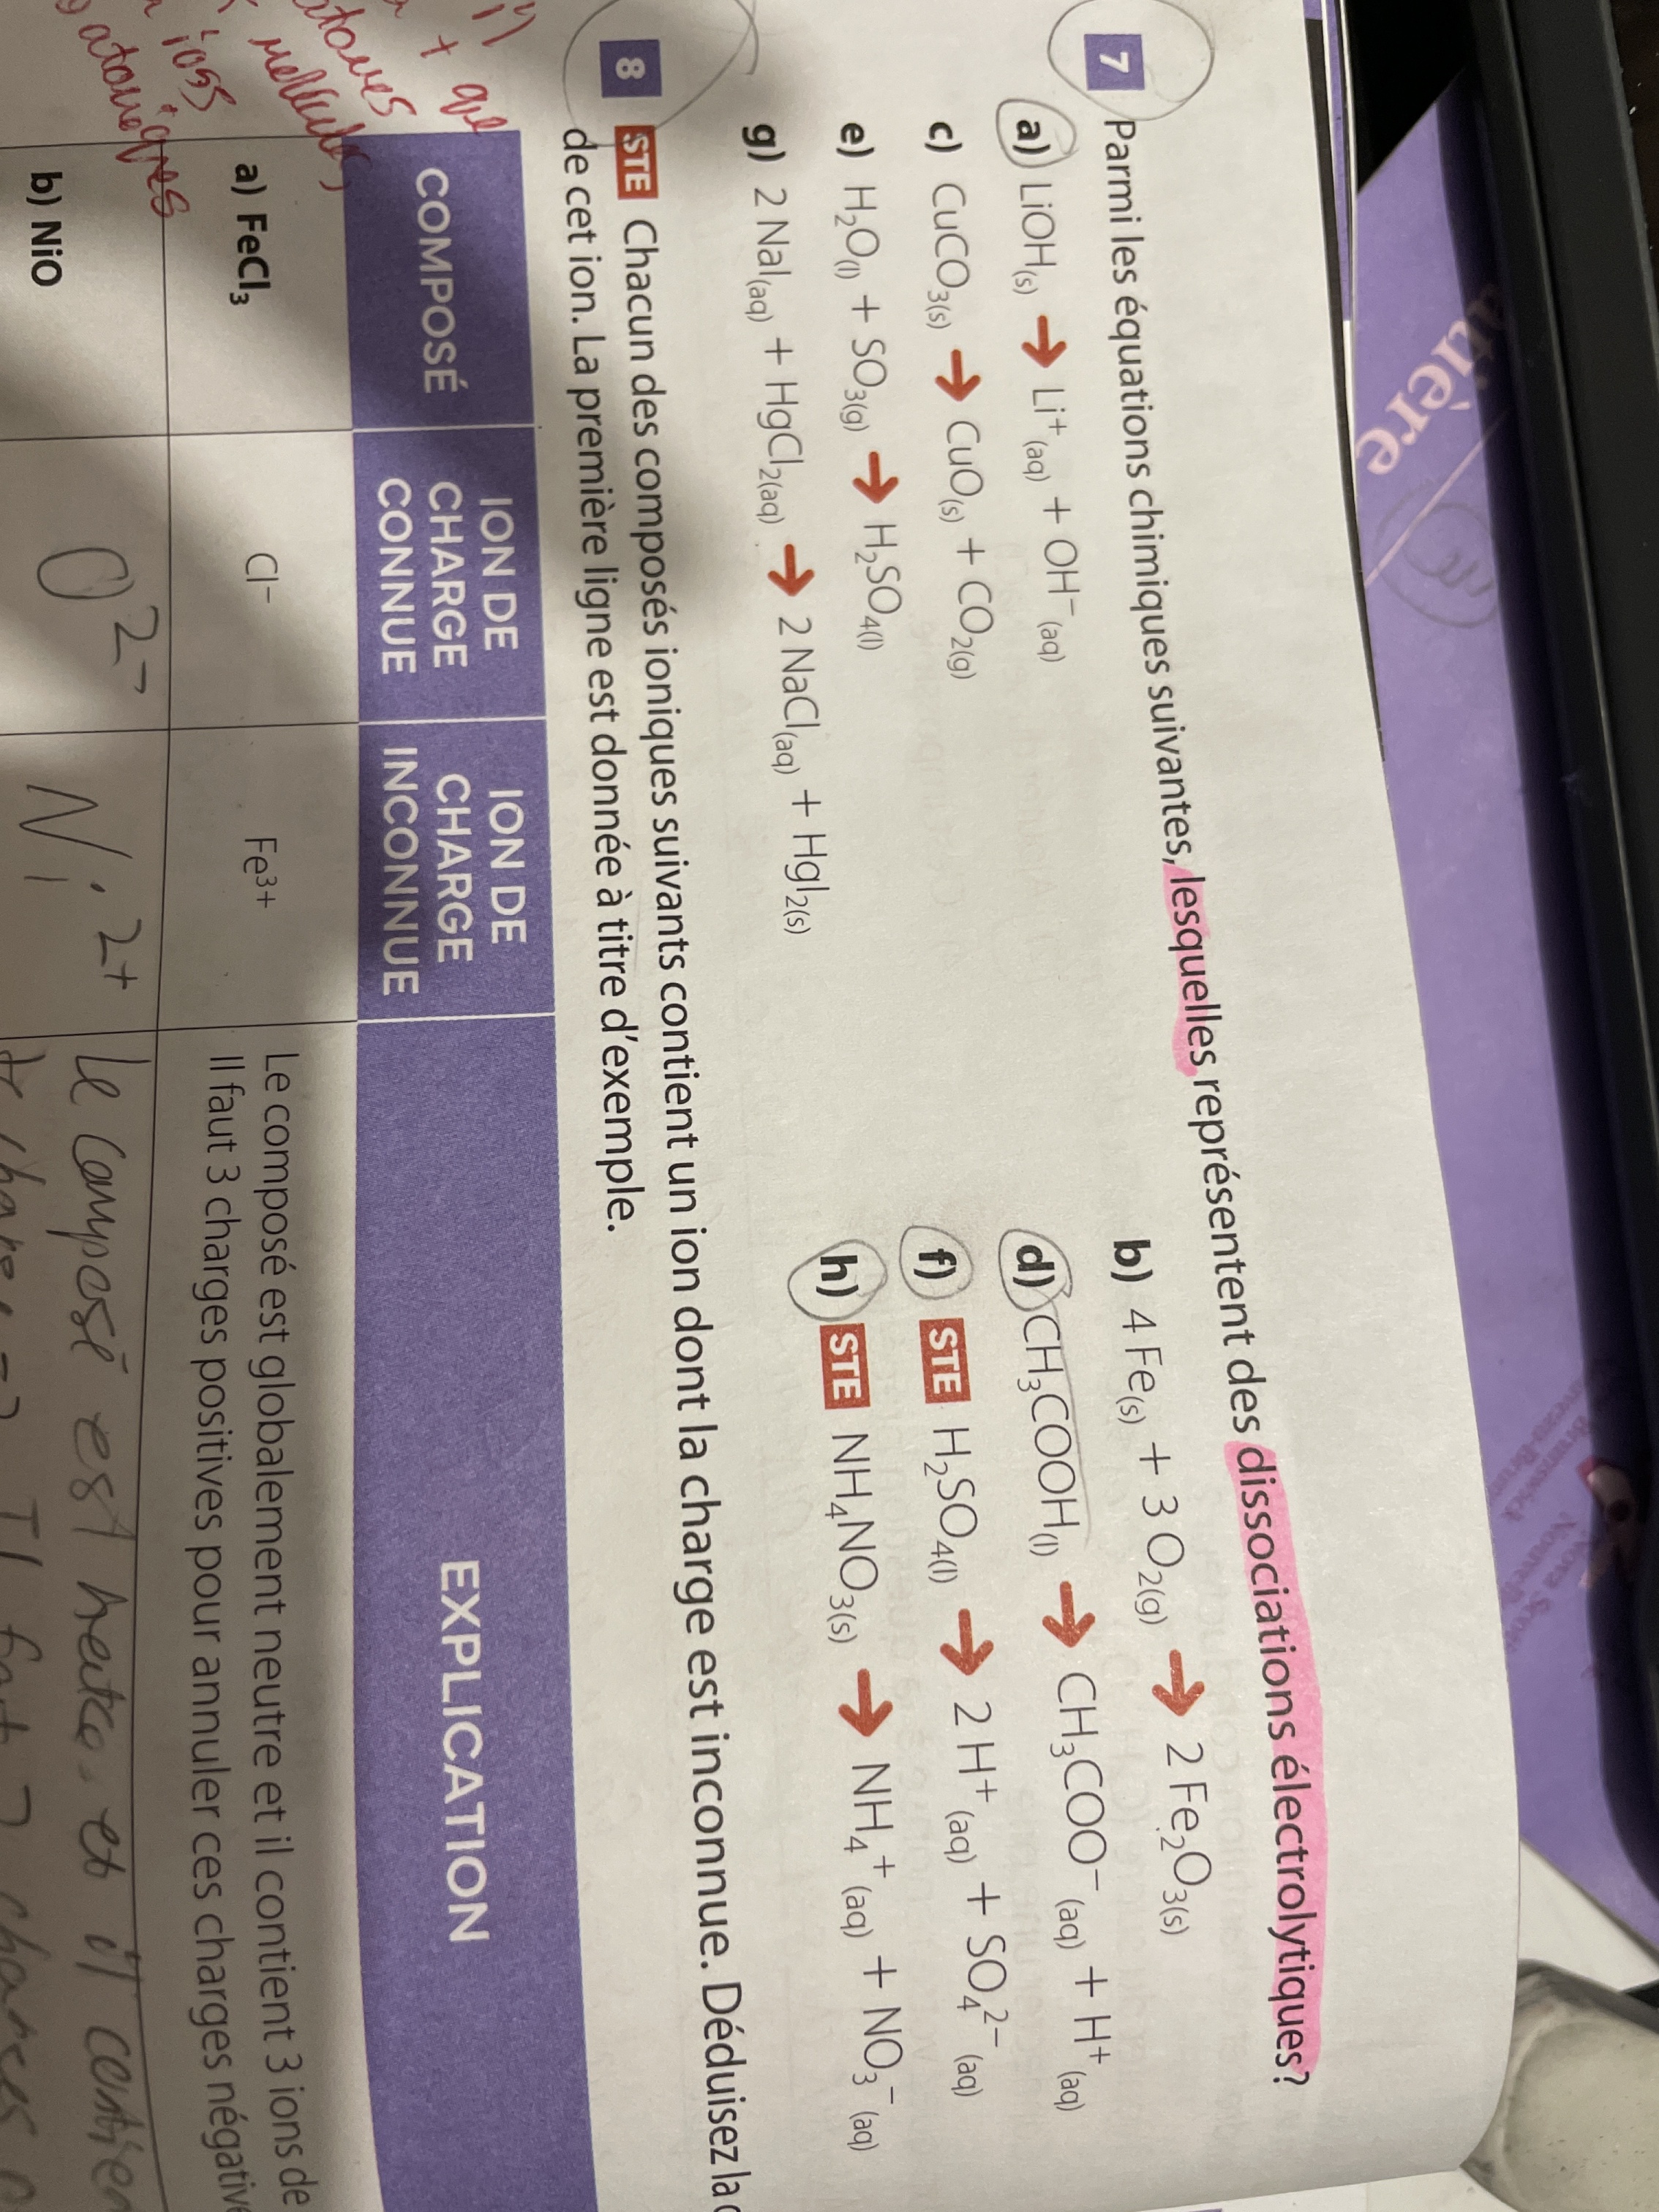 atière
7 Parmi les équations chimiques suivantes, lesquelles représentent des dissociations électrolytiques?
a) LiOH(s) → Li⁺(aq) + OH⁻(aq)
b) 4 Fe(s) + 3 O₂(g) → 2 Fe₂O₃(s)
c) CuCO₃(s) → CuO(s) + CO₂(g)
d) CH₃COOH(l) → CH₃COO⁻(aq) + H⁺(aq)
e) H₂O(l) + SO₃(g) → H₂SO₄(l)
f) STE H₂SO₄(l) → 2 H⁺(aq) + SO₄²⁻(aq)
g) 2 NaI(aq) + HgCl₂(aq) → 2 NaCl(aq) + HgI₂(s)
h) STE NH₄NO₃(s) → NH₄⁺(aq) + NO₃⁻(aq)
8 STE Chacun des composés ioniques suivants contient un ion dont la charge est inconnue. Déduisez la
de cet ion. La première ligne est donnée à titre d'exemple.
COMPOSÉ
ION DE
CHARGE
CONNUE
ION DE
CHARGE
INCONNUE
EXPLICATION
a) FeCl₃
Cl⁻
Fe³⁺
Le composé est globalement neutre et il contient 3 ions de
Il faut 3 charges positives pour annuler ces charges négative
b) NiO
O²⁻
Ni²⁺
Le composé est neutre. et il contien
atomiques